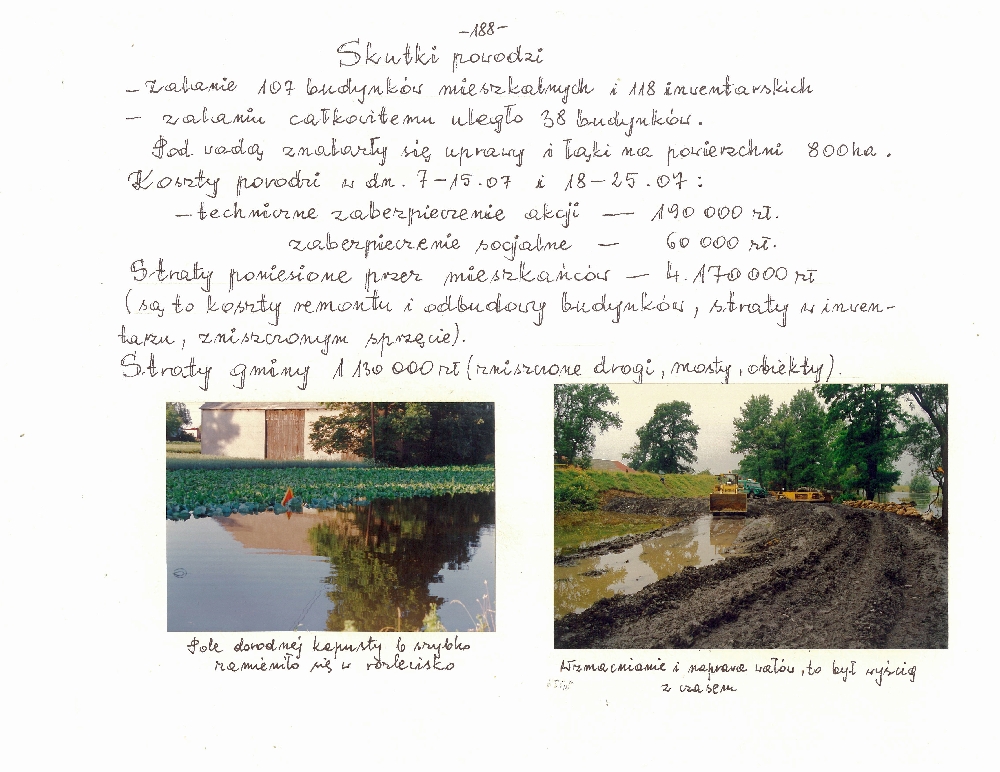 -188-
Skutki powodzi
- zalanie 107 budynków mieszkalnych i 118 inwentarskich
- zalaniu całkowitemu uległo 38 budynków.
Pod wodą znalazły się uprawy i łąki na powierzchni 800 ha.
Koszty powodzi w dn. 7-15.07 i 18-25.07:
- techniczne zabezpieczenie akcji — 190 000 zł.
zabezpieczenie socjalne — 60 000 zł.
Straty poniesione przez mieszkańców — 4.170 000 zł
(są to koszty remontu i odbudowy budynków, straty w inwen-
tarzu, zniszczonym sprzęcie).
Straty gminy 1 130 000 zł (zniszczone drogi, mosty, obiekty).
Pole dorodnej kapusty b. szybko
zamieniło się w rozlewisko
Wzmacnianie i naprawa wałów, to był wyścig
z czasem